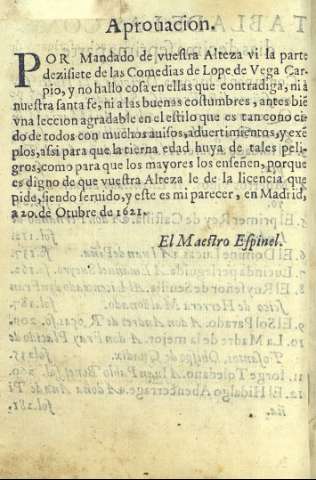 Aprouacion.
POR Mandado de vuestra Alteza vi la parte
dezisiete de las Comedias de Lope de Vega Car-
pio, y no hallo cosa en ellas que contradiga, ni à
nuestra santa fe, ni a las buenas costumbres, antes biẽ
vna leccion agradable en el estilo que es tan conoci
do de todos con muchos auisos, aduertimientos, y exẽ
plos, assi para que la tierna edad huya de tales peli-
gros, como para que los mayores los enseñen, porque
es digno de que vuestra Alteza le de la licencia que
pide, siendo seruido, y este es mi parecer, en Madrid,
a 20. de Otubre de 1621.
El Maestro Espinel.